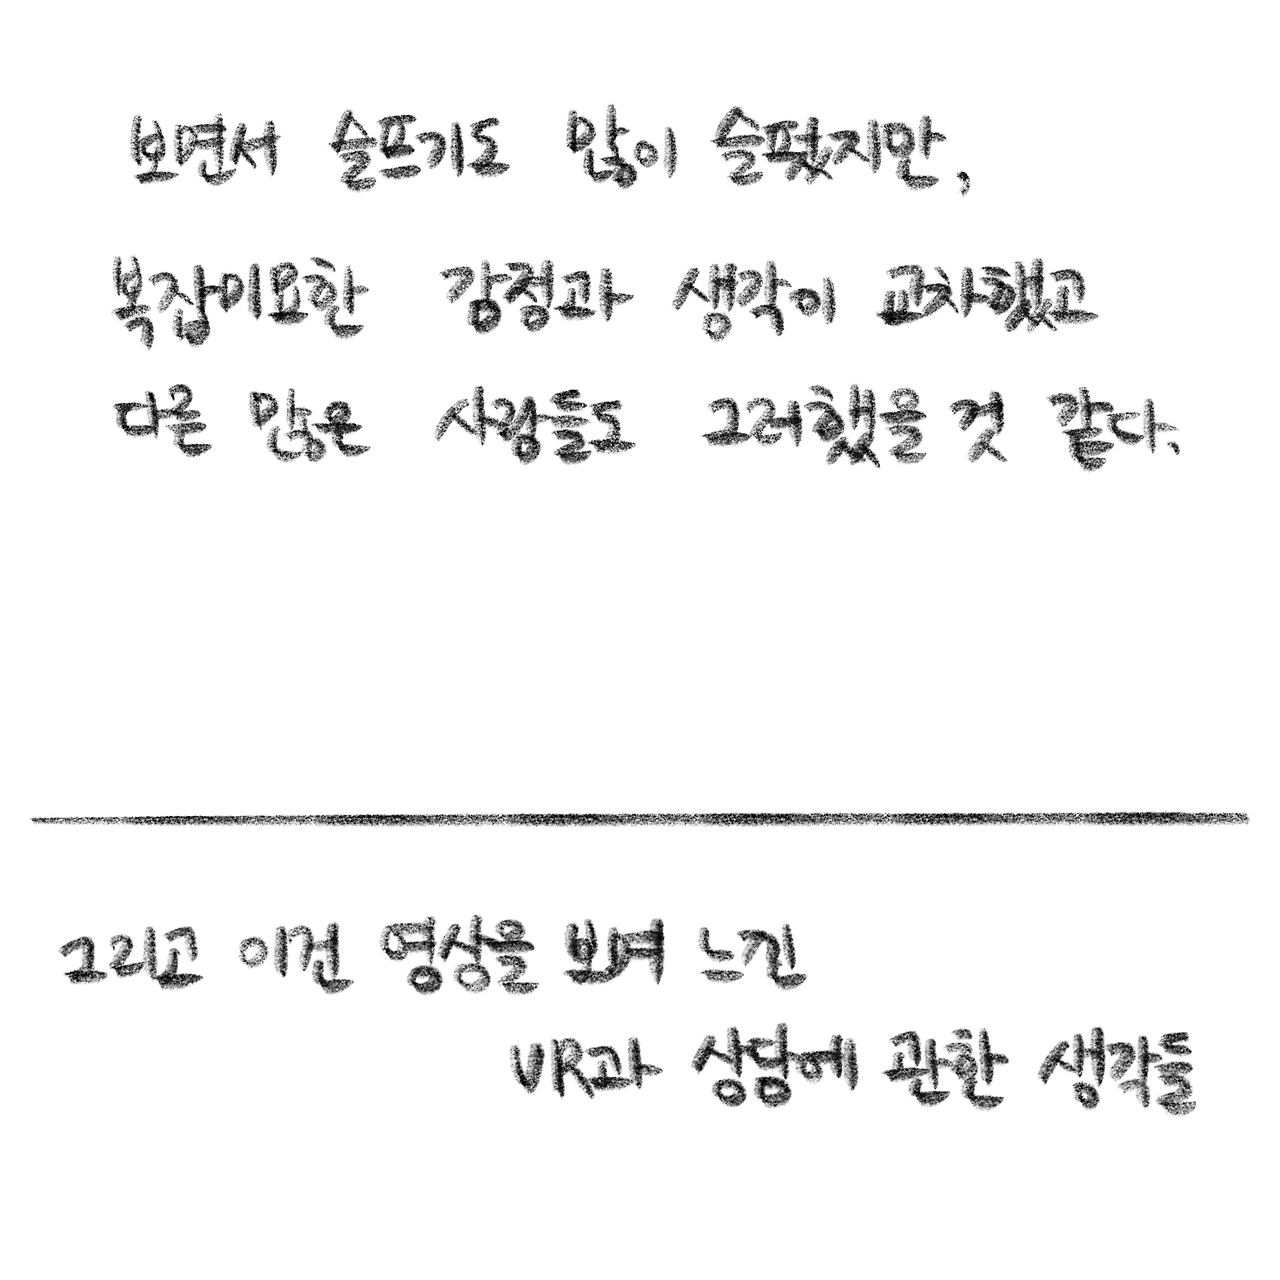 보면서 슬프기도 많이 슬펐지만,
복잡미묘한 감정과 생각이 교차했고
다른 많은 사람들도 그러했을 것 같다.
그리고 이건 영상을 보며 느낀
VR과 상담에 관한 생각들